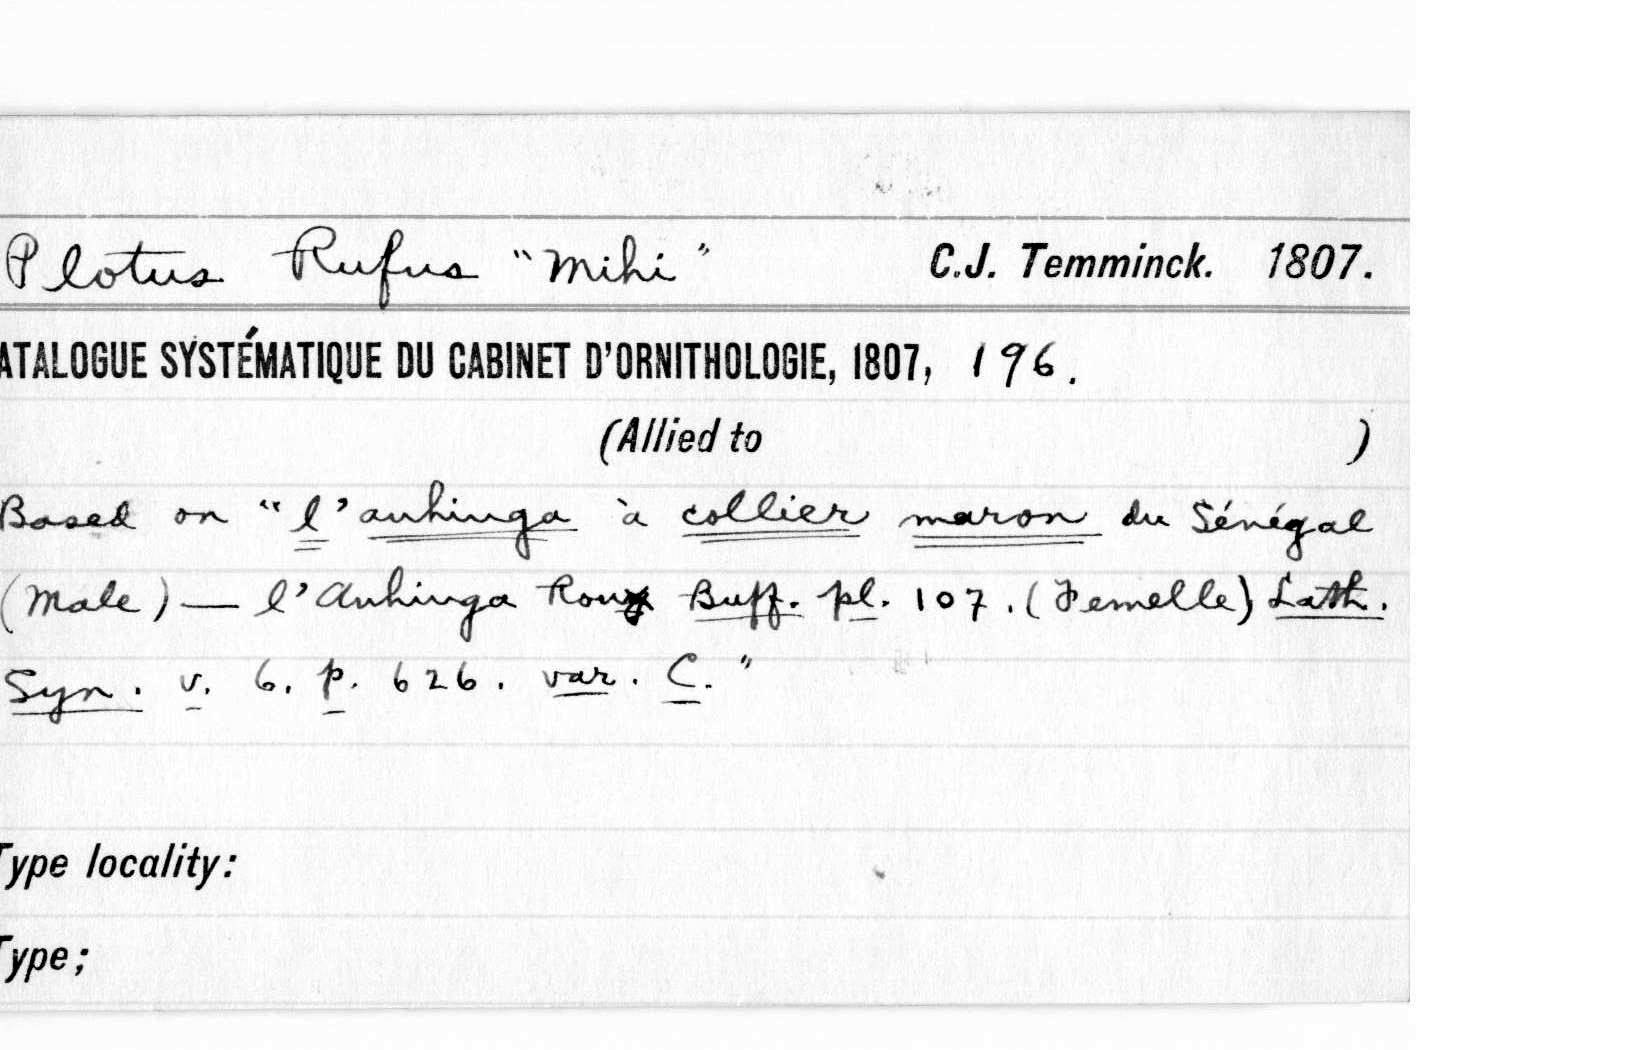 Plotus Rufus "Mihi" C.J. Temminck. 1807.
ATALOGUE SYSTÉMATIQUE DU CABINET D'ORNITHOLOGIE, 1807, 196.
(Allied to )
Based on "l'anhinga à collier maron du Sénégal
(Male) — l'Anhinga Roux Buff. pl. 107. (Femelle) Lath.
Syn. v. 6. p. 626. var. C."
Type locality:
Type;